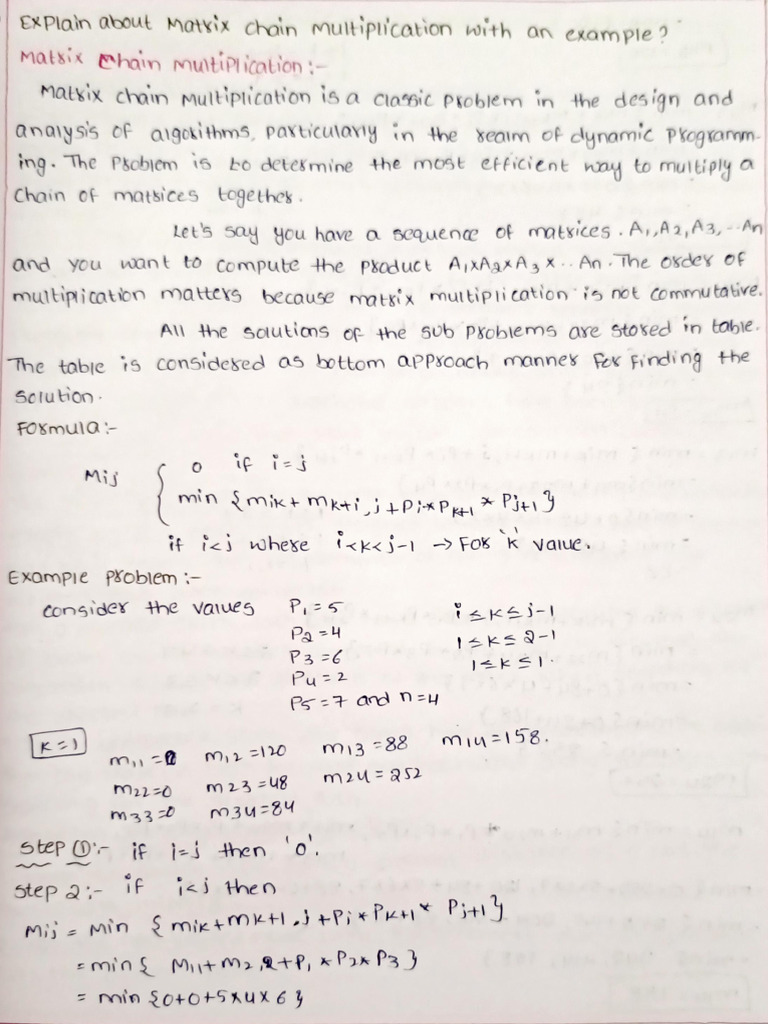 Explain about Matrix chain multiplication with an example?
Matrix Chain Multiplication:-
Matrix chain Multiplication is a classic problem in the design and
analysis of algorithms, particularly in the realm of dynamic Programm-
ing. The Problem is to determine the most efficient way to multiply a
Chain of matrices together.
Let's say you have a sequence of matrices. A1, A2, A3, --An
and you want to compute the product A1xA2xA3x..An. The order of
multiplication matters because matrix multiplication is not commutative.
All the solutions of the sub problems are stored in table.
The table is considered as bottom approach manner for finding the
solution.
Formula:-
Mij { 0 if i=j
min {mik+mk+i,j+Pi*Pk+1*Pj+1}
if i<j where i<k<j-1 → For 'k' value.
Example Problem:-
consider the values P1=5 i≤k≤j-1
P2=4 1≤k≤2-1
P3=6 1≤k≤1.
P4=2
P5=7 and n=4
K=1
m11=0 m12=120 m13=88 m14=158.
m22=0 m23=48 m24=252
m33=0 m34=84
Step ①:- if i=j then '0'.
Step 2:- if i<j then
Mij = Min {mik+mk+1,j+Pi*Pk+1*Pj+1}
=min{ M11+m2,2+P1*P2*P3}
= min {0+0+5x4x6}